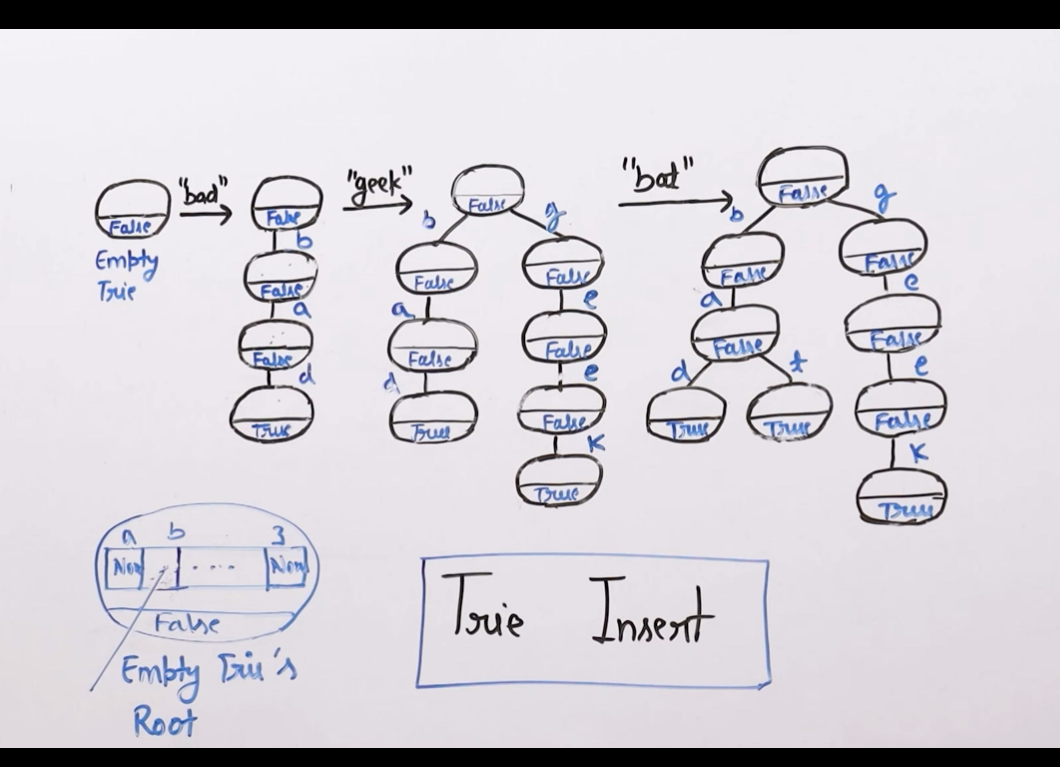 "bad"
"geek"
"bat"
False
Empty
Trie
False
b
False
a
False
d
True
False
b
g
False
False
a
e
False
False
d
e
True
False
k
True
False
b
g
False
False
a
e
False
False
d
t
e
True
True
False
k
True
a b z
Non .... Non
False
Empty Trie's
Root
Trie Insert